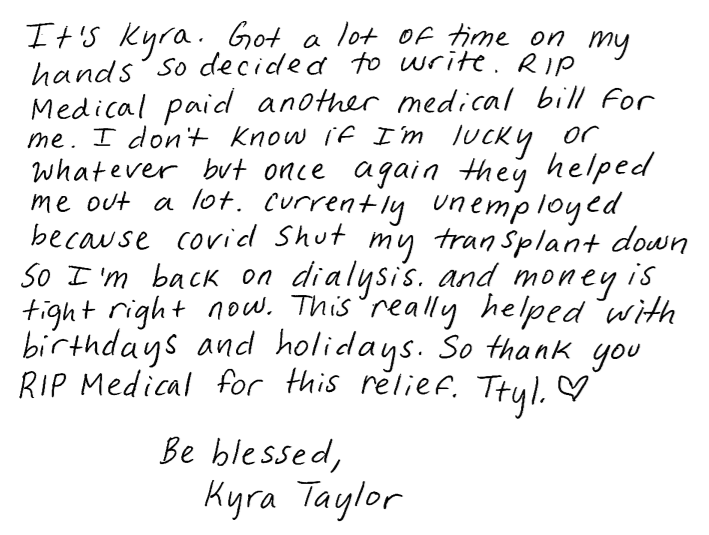 It's Kyra. Got a lot of time on my
hands so decided to write. RIP
Medical paid another medical bill for
me. I don't know if I'm lucky or
whatever but once again they helped
me out a lot. Currently unemployed
because covid shut my transplant down
so I'm back on dialysis. and money is
tight right now. This really helped with
birthdays and holidays. So thank you
RIP Medical for this relief. Ttyl. ♡
Be blessed,
Kyra Taylor